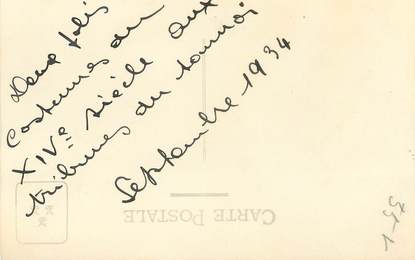 Deux jolis
Costumes du
XIVme siècle aux
tribunes du tournoi
Septembre 1934
CARTE POSTALE